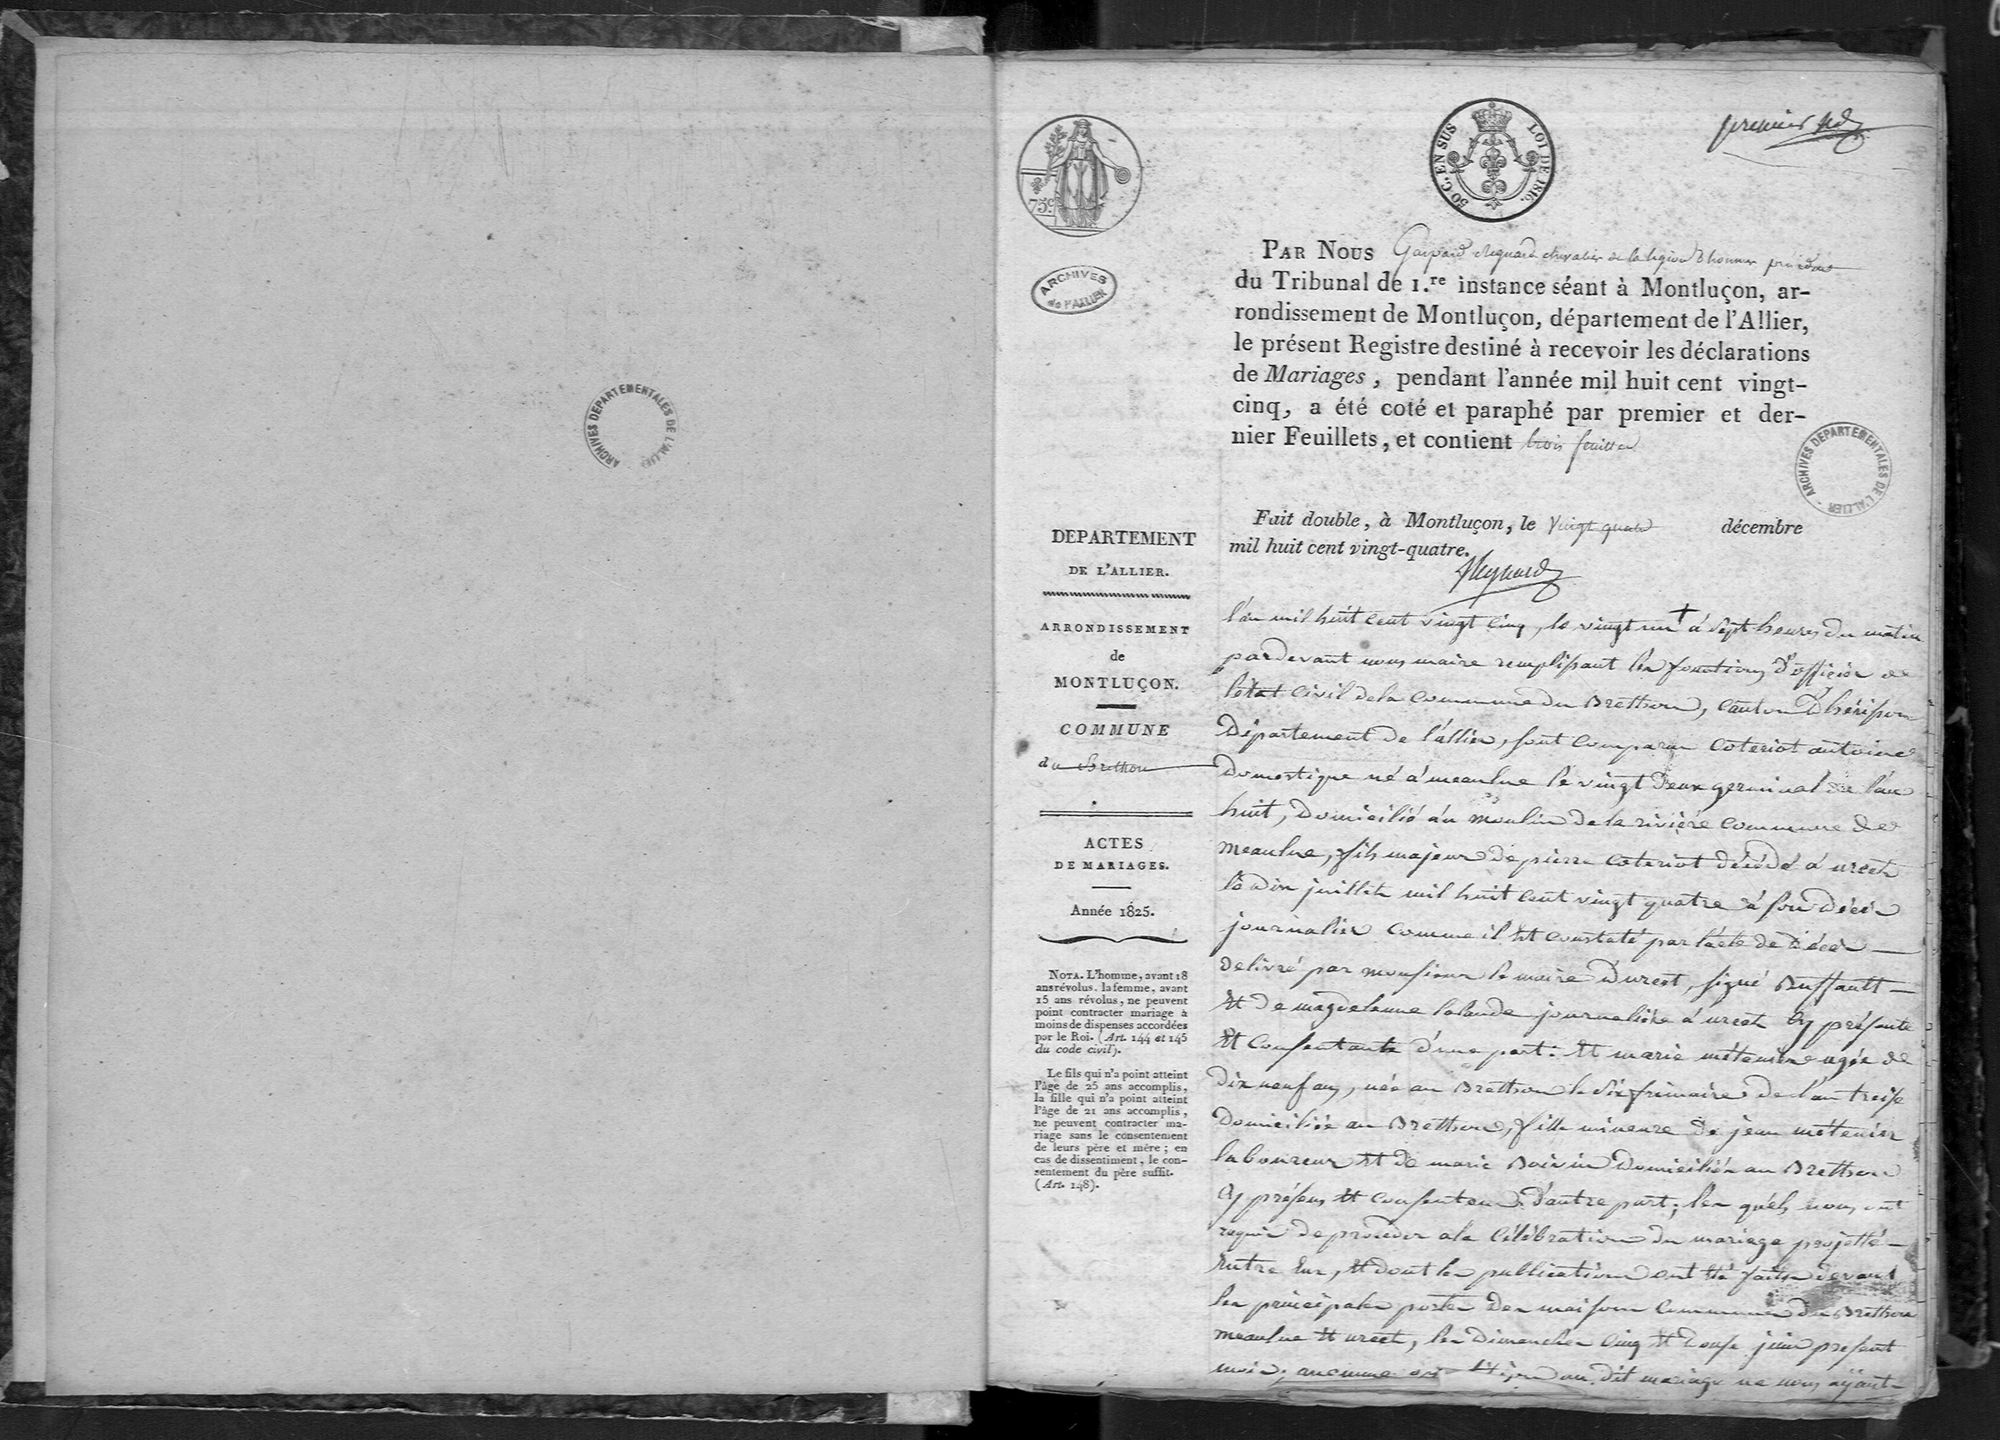 ARCHIVES DEPARTEMENTALES DE L'ALLIER
premier
75c
50 C. EN SUS LOI DE 1816.
ARCHIVES de l'ALLIER
PAR NOUS Gaspard Regnard chevalier de la légion d'honneur président
du Tribunal de 1.re instance séant à Montluçon, ar-
rondissement de Montluçon, département de l'Allier,
le présent Registre destiné à recevoir les déclarations
de Mariages, pendant l'année mil huit cent vingt-
cinq, a été coté et paraphé par premier et der-
nier Feuillets, et contient trois feuilles
ARCHIVES DEPARTEMENTALES DE L'ALLIER
Fait double, à Montluçon, le vingt quatre décembre
mil huit cent vingt-quatre.
Regnard
DEPARTEMENT
DE L'ALLIER.
ARRONDISSEMENT
de
MONTLUÇON.
COMMUNE
du Brethon
ACTES
DE MARIAGES.
Année 1825.
NOTA. L'homme, avant 18
ans révolus, la femme, avant
15 ans révolus, ne peuvent
point contracter mariage à
moins de dispenses accordées
par le Roi. (Art. 144 et 145
du code civil).
Le fils qui n'a point atteint
l'âge de 25 ans accomplis,
la fille qui n'a point atteint
l'âge de 21 ans accomplis,
ne peuvent contracter ma-
riage sans le consentement
de leurs père et mère; en
cas de dissentiment, le con-
sentement du père suffit.
(Art. 148).
l'an mil huit cent vingt cinq, le vingt un + à sept heures du matin
pardevant nous maire remplissant les fonctions d'officier de
l'état civil de la commune du Brethon, canton d'hérisson
département de l'allier, sont comparu coteriot antoine
domestique né à meaulne le vingt deux germinal de l'an
huit, domicilié au moulin de la rivière commune de
meaulne, fils majeur de pierre coteriot décédé à urcet
le dix juillet mil huit cent vingt quatre à son décès
journalier comme il est constaté par l'acte de décès
delivré par monsieur le maire d'urcet, signé Buffault
et de magdelenne lalande journalière à urcet cy présente
et consentante d'une part: et marie metenier agée de
dix neuf ans, née au Brethon le dix frimaire de l'an treise
domiciliée au Brethon, fille mineure de jean metenier
laboureur et de marie Boivin domiciliés au Brethon
cy présens et consentens d'autre part; les quels nous ont
requis de proceder a la célébration du mariage projetté
entre eux, et dont les publications ont été faites devant
les principales portes des maisons communes du Brethon
meaulne et urcet, les dimanches cinq et douse juin présent
mois; aucune opposition au dit mariage ne nous ayant